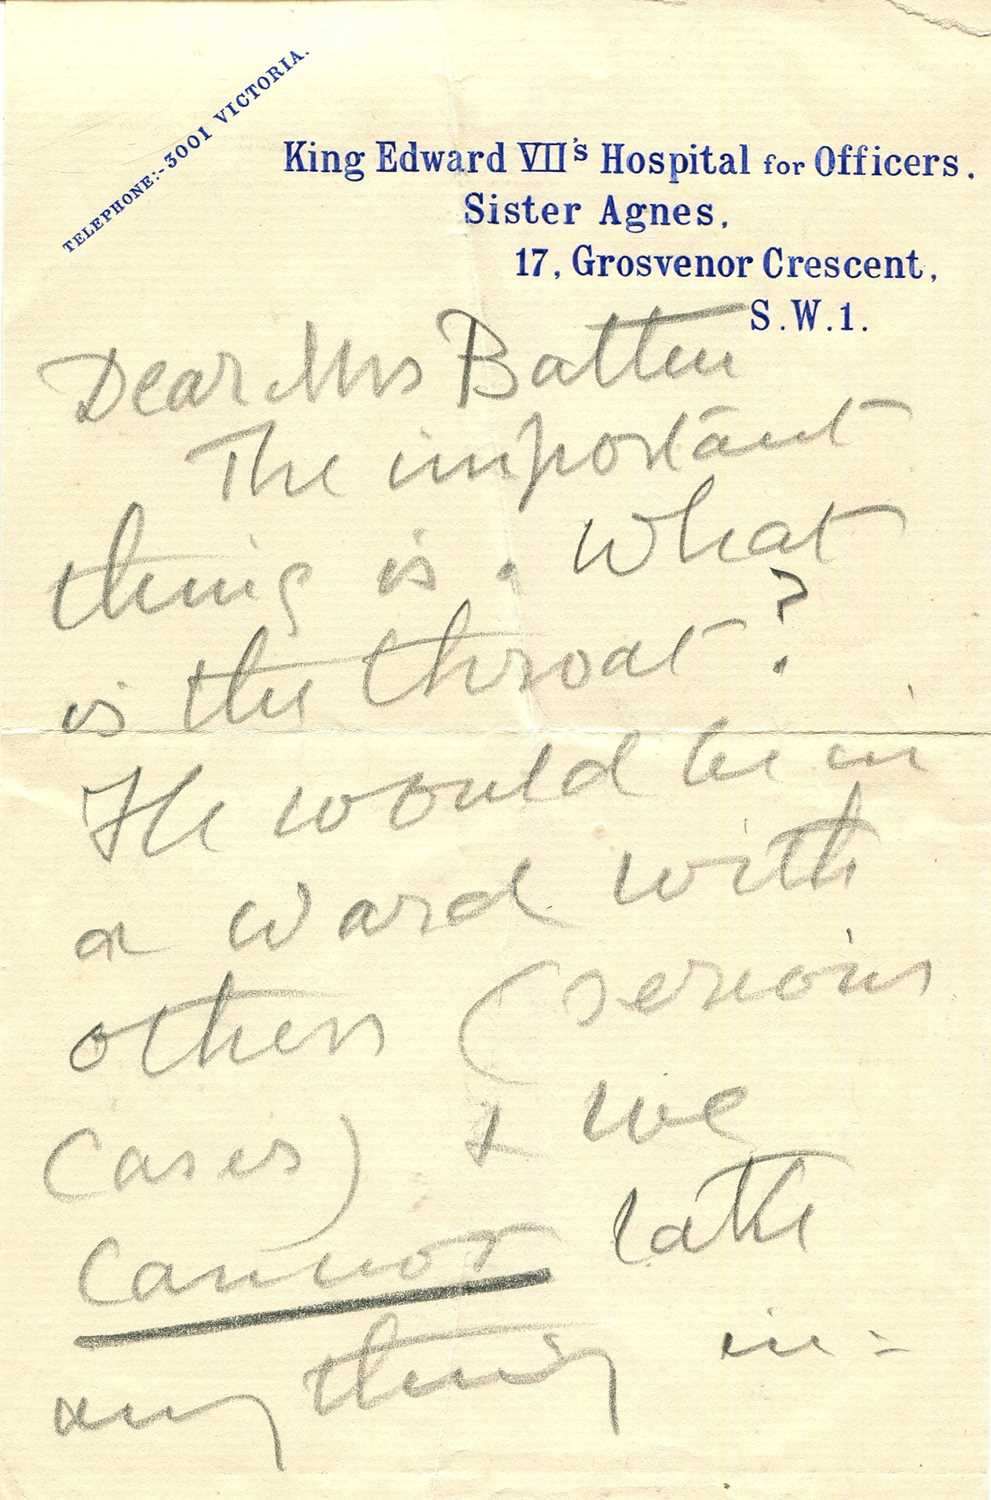 TELEPHONE:-3001 VICTORIA.
King Edward VII's Hospital for Officers.
Sister Agnes,
17, Grosvenor Crescent,
S.W.1.
Dear Mrs Batten
The important
thing is. What
is the throat?
He would be in
a ward with
others (serious
Cases) & we
cannot take
anything in=